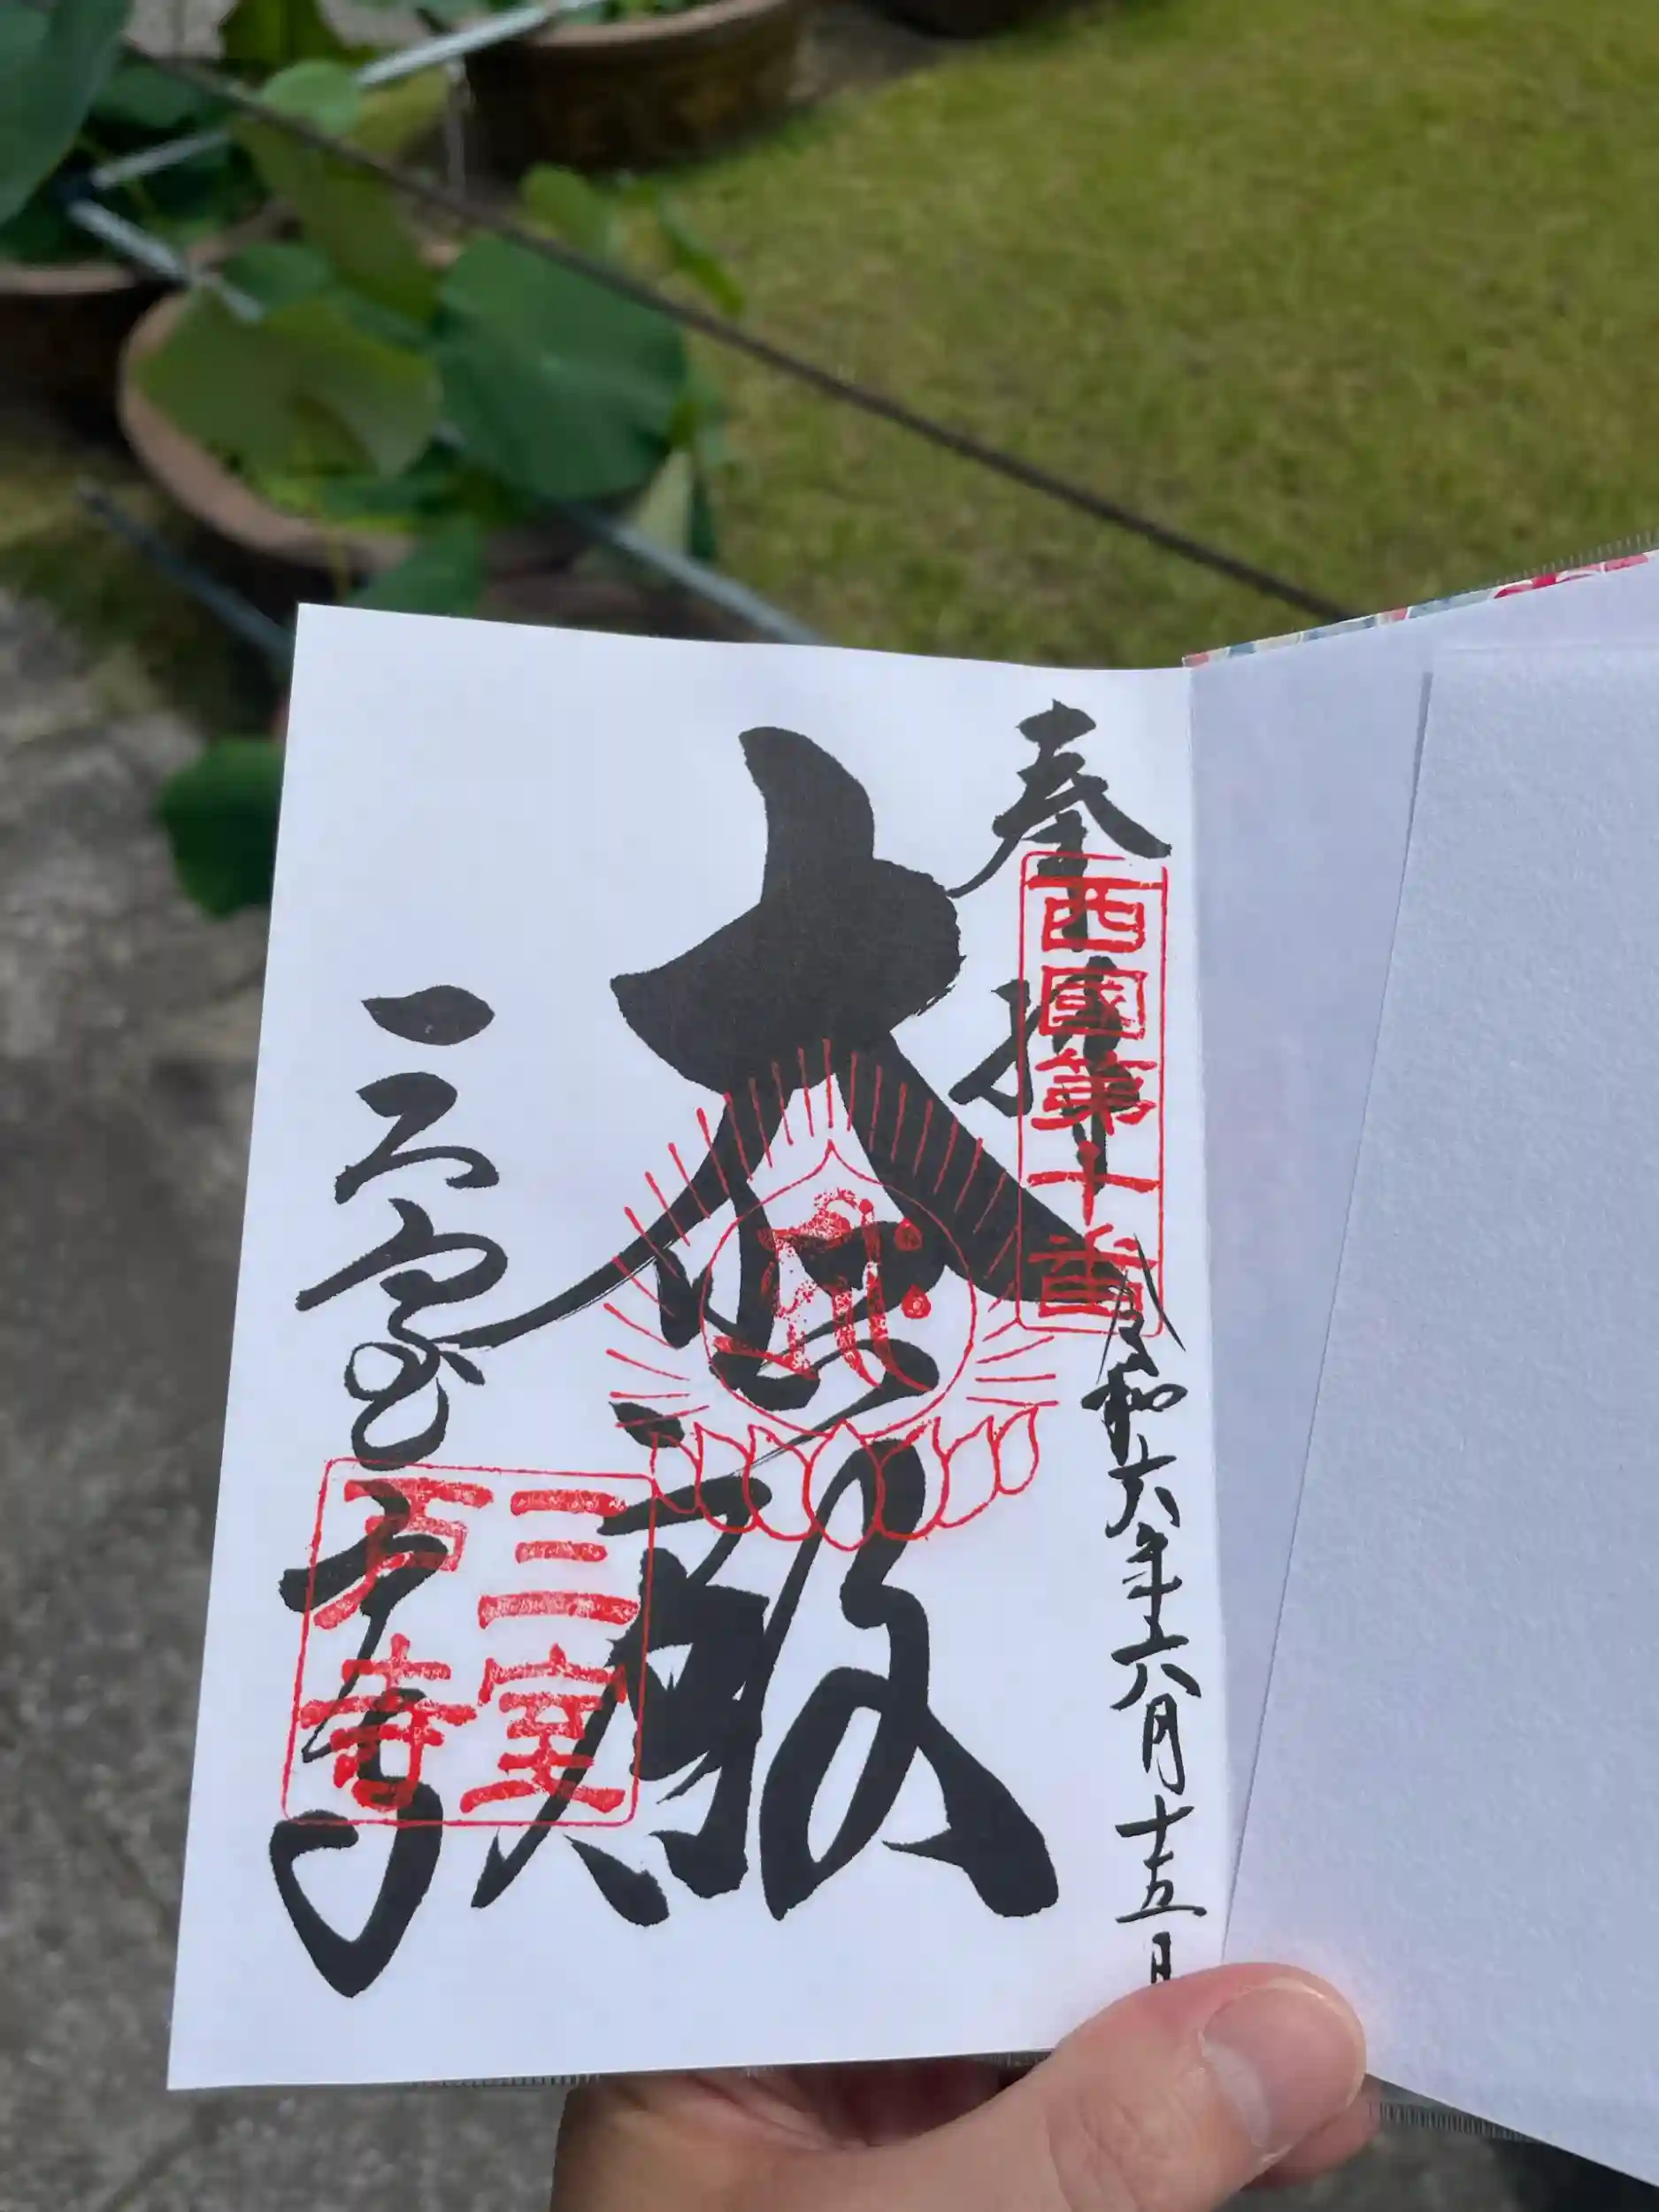 奉拝
西國第十番
令和六年六月十五日
大悲殿
三室戸寺
三室
戸寺